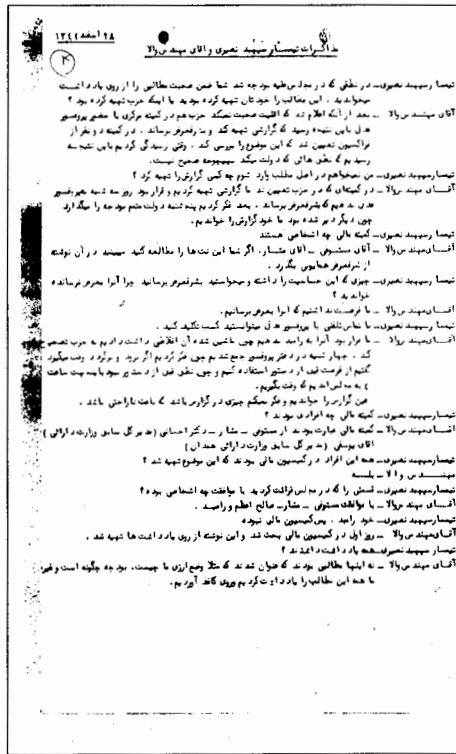 ۲۸ اسفند ۱۳۴۴
مذاکرات تیمسار سپهبد نصیری و آقای مهندس والا
تیمسار سپهبد نصیری ــ در نطقی که در مجلس علیه بودجه شد شما ضمن صحبت مطالبی را از روی یادداشت
میخواندید . این مطالب را خودتان تهیه کرده بودید یا اینکه حزب تهیه کرده بود ؟
آقای مهندس والا ــ بعد از آنکه اعلام شد که اقلیت صحبت نمیکند حزب هم در کمیته مرکزی با حضور پروفسور
عدل باین نتیجه رسید که گزارشی تهیه کند و بشرفعرض برساند . در کمیته دو نفر از
فراکسیون تعیین شد که این موضوع را بررسی کند . وقتی رسیدگی کردیم باین نتیجه
رسیدیم که نطق هائی که دولت میکند هیچوجه صحیح نیست.
تیمسار سپهبد نصیری ــ من نمیخواهم در اصل مطلب وارد شوم چه کسی گزارش را تهیه کرد ؟
آقای مهندس والا ــ در کمیته‌ای که در حزب تعیین شد ما گزارشی تهیه کردیم و قرار بود روز سه شنبه بعد پروفسور
عدل بدهیم که بشرفعرض برساند . بعد فکر کردیم پنجشنبه دولت متمم بودجه را میگذارد
چون دیگر دیر شده بود ما خود گزارش را خواندیم.
تیمسار سپهبد نصیری ــ کمیته مالی چه اشخاصی هستند
آقای مهندس والا ــ آقای مستوفی ــ آقای مشار. اگر شما این نت‌ها را مطالعه کنید میبینید در آن نوشته
از شرفعرض همایونی بگذرد .
تیمسار سپهبد نصیری ــ چیزی که این حساسیت را داشته و میخواستید بشرفعرض برسانید چرا آنرا بعرض نرسانده
خواندید ؟
آقای مهندس والا ــ ما فرصت نداشتیم که آنرا بعرض برسانیم.
تیمسار سپهبد نصیری ــ با تماس تلفنی با پروفسور عدل میتوانستید کسب تکلیف کنید .
آقای مهندس والا ــ ما قرار بود آنرا به رامبد بدهیم چون ماشین شده آن اغلاطی داشت دادیم به حزب تصحیح
کند . چهارشنبه در دفتر پروفسور جمع شدیم چون فکر کردیم اگر برید و برگردد وقت میگیرد
گفتیم از فرصت قبل از دستور استفاده کنیم و چون نطق قبل از دستور میبایست ساعت
۷ به مجلس آمدیم که وقت بگیریم.
عین گزارش را خواندیم و فکر نمیکنم چیزی در گزارش باشد که باعث ناراحتی باشد .
تیمسار سپهبد نصیری ــ کمیته مالی چه افرادی بودند ؟
آقای مهندس والا ــ کمیته مالی عبارت بودند از مستوفی ــ مشار ــ دکتر احسانی (مدیر کل سابق وزارت دارائی )
آقای یوسفی ( مدیر کل سابق وزارت دارائی همدان )
تیمسار سپهبد نصیری ــ همه این افراد در کمیسیون مالی بودند که این موضوع تهیه شد ؟
مهندس والا ــ بلــه
تیمسار سپهبد نصیری ــ قسمتی را که در مجلس قرائت کردید با موافقت چه اشخاصی بوده ؟
آقای مهندس والا ــ با موافقت مستوفی ــ مشار ــ صالح اعظم و رامبد .
تیمسار سپهبد نصیری ــ خود رامبد . پس کمیسیون مالی نبوده
آقای مهندس والا ــ روز اول در کمیسیون مالی بحث شد و این نوشته از روی یادداشت‌ها تهیه شد .
تیمسار سپهبد نصیری ــ همه یادداشت داشتند ؟
آقای مهندس والا ــ نه اینها مطالبی بودند که عنوان شدند که مثلا وضع ارزی ما چیست. بودجه چگونه است و غیره
ما همه این مطالب را یادداشت کردیم و روی کاغذ آوردیم.